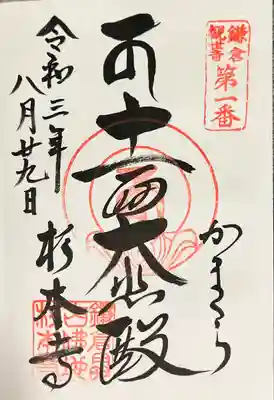 鎌倉
観音
第一番
かまくら
十一面大悲殿
令和三年
八月廿九日
杉本寺